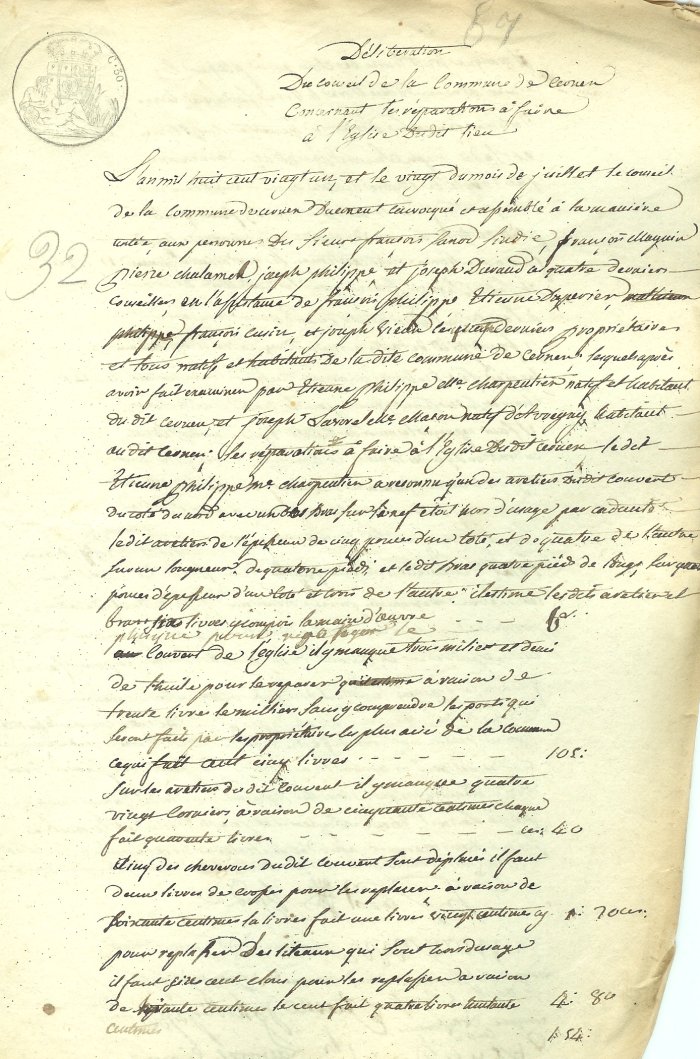 67
C. 50.
Délibération
Du Conseil de la Commune de Cernen
Concernant les réparations à faire
à l'Eglise Dudit lieu
32
L'an mil huit cent vingt un, et le vingt du mois de juillet le conseil
de la Commune de Cernen Duement convoqué et assemblé à la manière
aux personnes Des Sieurs françois Sindic, françois
pierre chalamel, joseph philippe et joseph Duraud
Conseillers en l'assistance de françois philippe Etienne Duperier,
philippe, françois et joseph derniers propriétaires
et tous natifs et habitants De la dite Commune de Cernen lesquels après
avoir fait examiner par Etienne Philippe Me charpentier natif et habitant
du dit Cernen, et joseph Me Maçon natif habitant
audit Cernen les réparations à faire à l'Eglise Dudit Cernen le dit
Etienne philippe Me charpentier a reconnu qu'un des areliers Dudit Couvert
Du coté du nord avec un bras sur la nef étoit hors d'usage par caducité
le dit arelier de l'épesseur de cinq pouces d'un coté, et de quatre de l'autre
sur un longueur de quatorze pieds, et le dit bras quatre pieds de long, sur quatre
pouces d'épesseur d'un coté et trois de l'autre il estime les dits arelier et
bras livres y compris la main d'œuvre - - - 6#
pour
au Couvert de l'église il y manque trois milier et demi
de thuile pour le reparer à raison de
trente livres le milliers sans y comprendre les ports qui
seront faits par les propriétaires les plus aisé de la Commune
ce qui fait cent cinq livres - - - - - 105:
Sur les areliers du dit Couvert il y manque quatre
vingt Corniers, à raison de cinquante centimes chaque
fait quarante livres - - - - - - - ces: 40
cinq des cheverons du dit couvert sont il faut
deux livres de pour les replacer à raison de
soixante centimes la livres fait une livres vingt centimes cy 1: 20 ces:
pour replasser Des liteaux qui sont hors d'usage
il faut cent clous pour les replasser à raison
de centimes le cent fait quatre livres 4: 80
centimes 154: